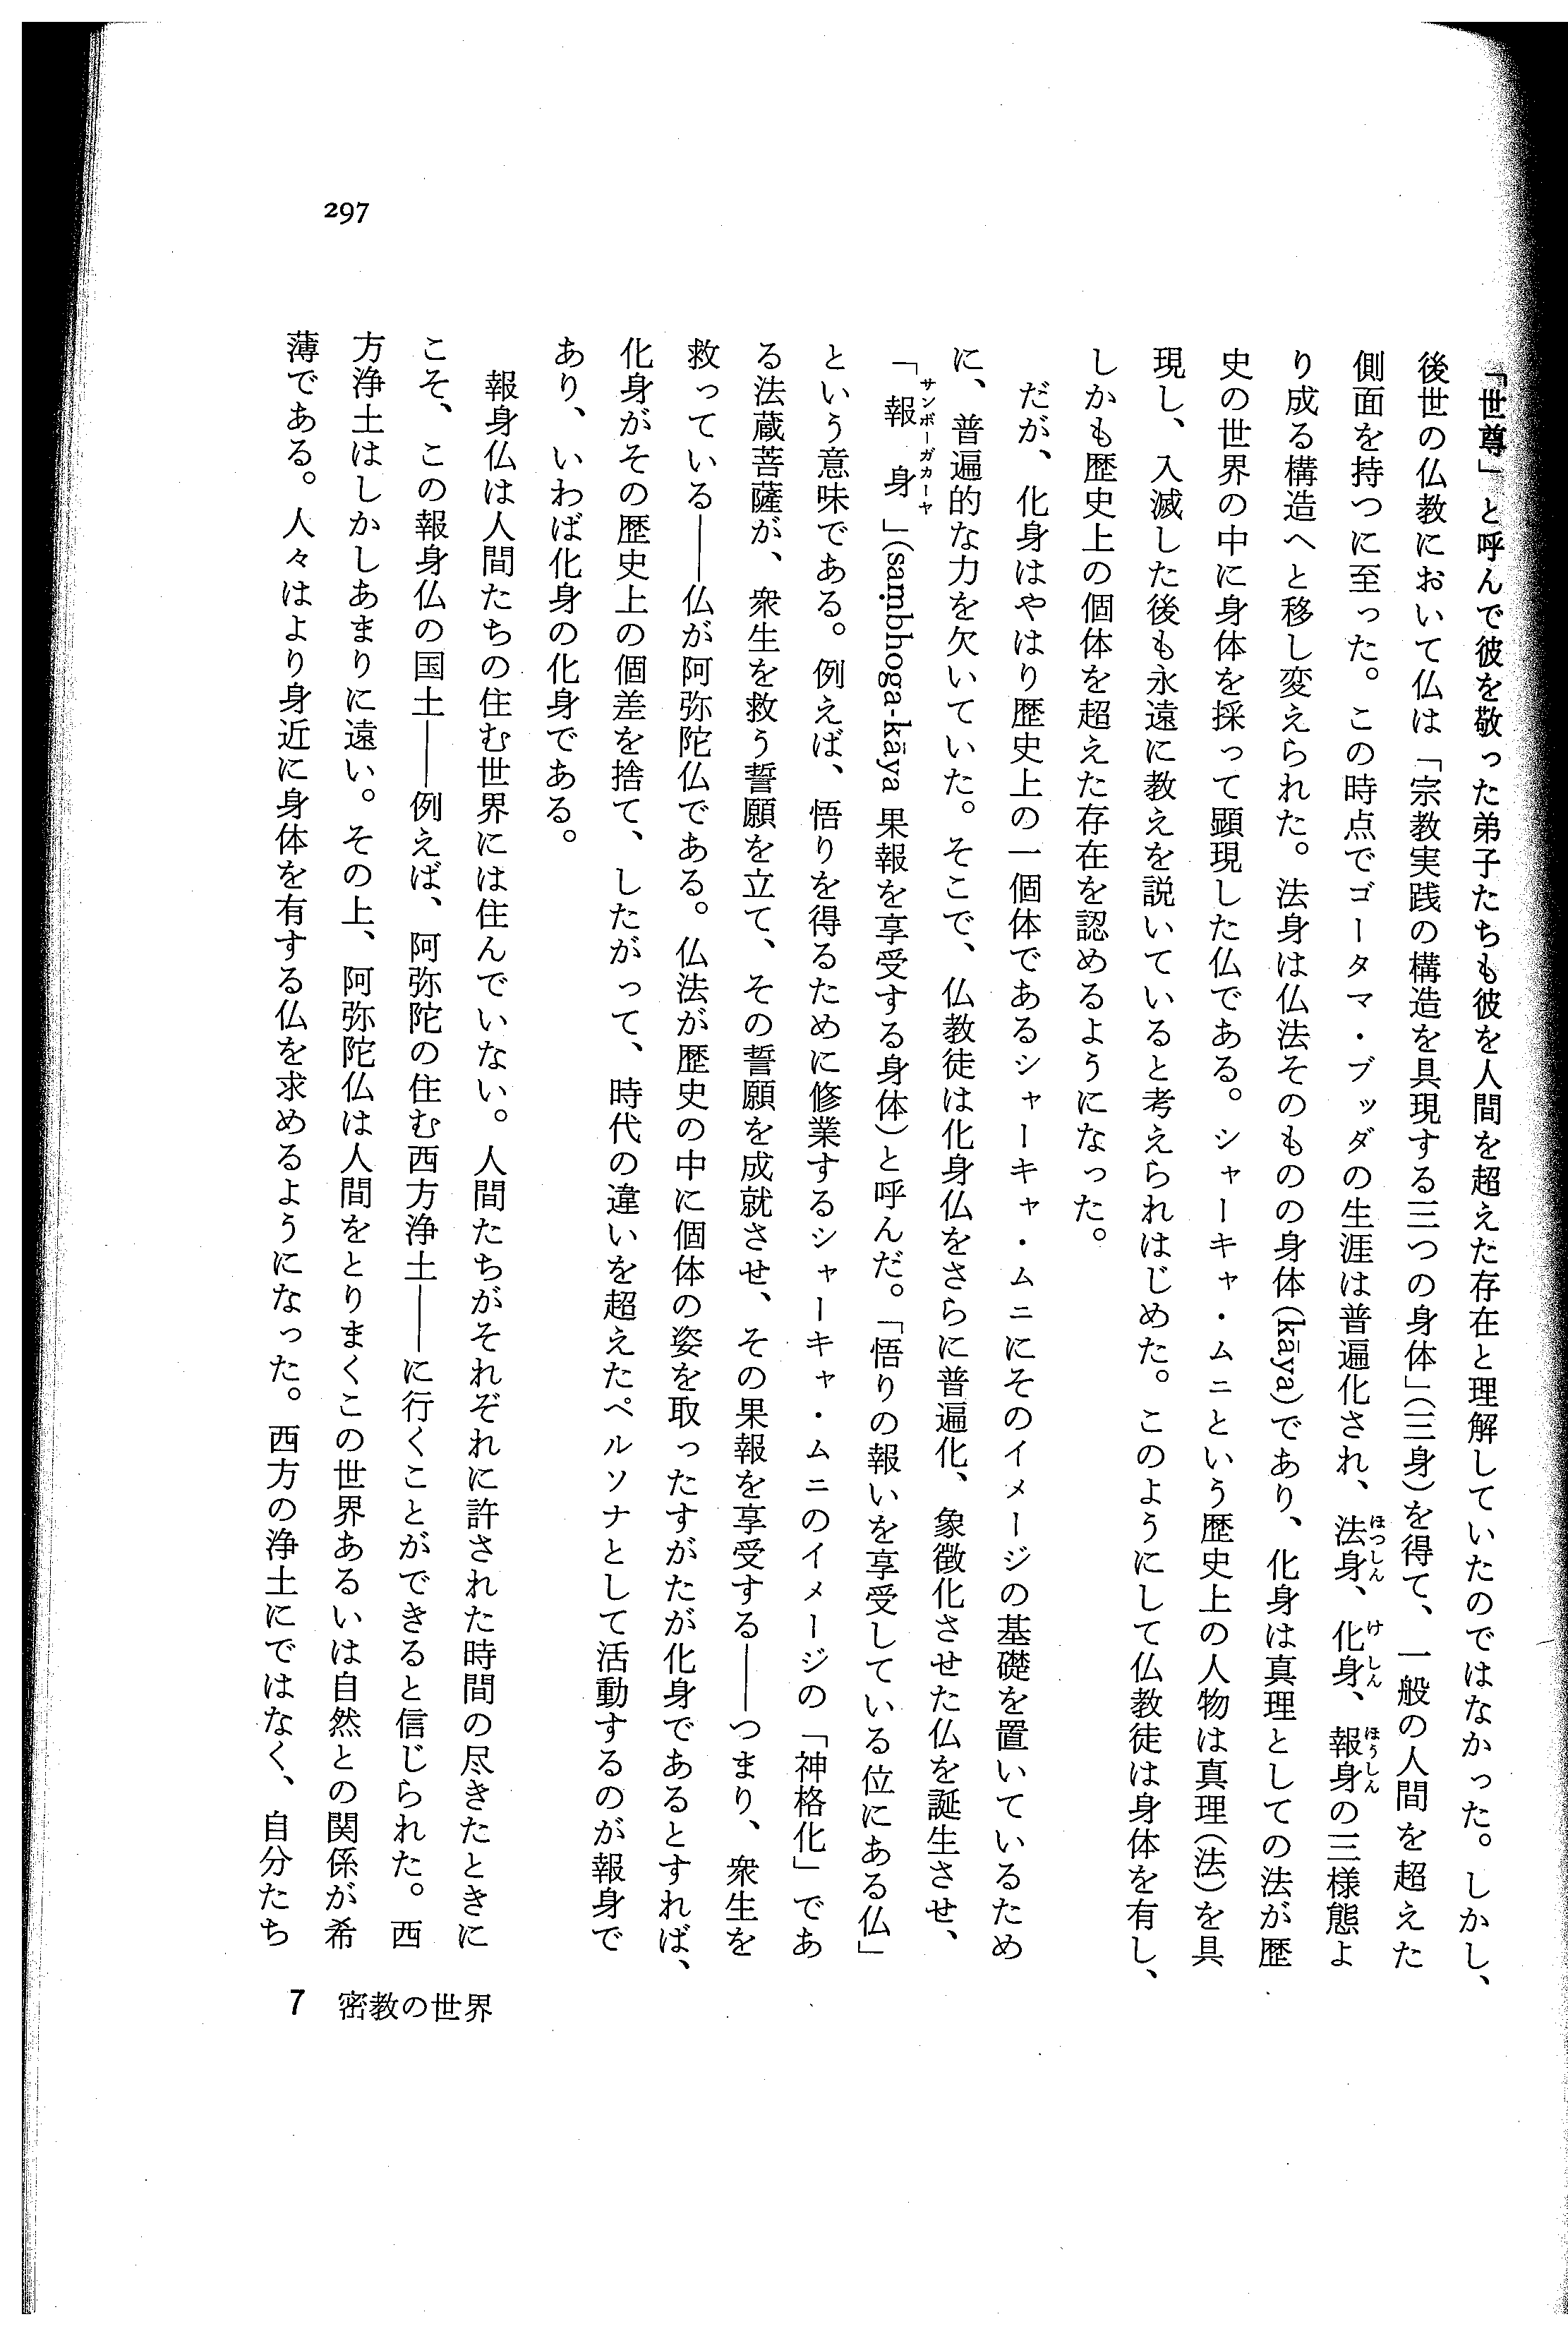 「世尊」と呼んで彼を敬った弟子たちも彼を人間を超えた存在と理解していたのではなかった。しかし、
後世の仏教において仏は「宗教実践の構造を具現する三つの身体」（三身）を得て、一般の人間を超えた
側面を持つに至った。この時点でゴータマ・ブッダの生涯は普遍化され、法身、化身、報身の三様態よ
ほっしん けしん ほうしん
り成る構造へと移し変えられた。法身は仏法そのものの身体（kāya）であり、化身は真理としての法が歴
史の世界の中に身体を採って顕現した仏である。シャーキャ・ムニという歴史上の人物は真理（法）を具
現し、入滅した後も永遠に教えを説いていると考えられはじめた。このようにして仏教徒は身体を有し、
しかも歴史上の個体を超えた存在を認めるようになった。
だが、化身はやはり歴史上の一個体であるシャーキャ・ムニにそのイメージの基礎を置いているため
に、普遍的な力を欠いていた。そこで、仏教徒は化身仏をさらに普遍化、象徴化させた仏を誕生させ、
「報身」（saṃbhoga-kāya 果報を享受する身体）と呼んだ。「悟りの報いを享受している位にある仏」
サンボーガカーヤ
という意味である。例えば、悟りを得るために修業するシャーキャ・ムニのイメージの「神格化」であ
る法蔵菩薩が、衆生を救う誓願を立て、その誓願を成就させ、その果報を享受する――つまり、衆生を
救っている――仏が阿弥陀仏である。仏法が歴史の中に個体の姿を取ったすがたが化身であるとすれば、
化身がその歴史上の個差を捨て、したがって、時代の違いを超えたペルソナとして活動するのが報身で
あり、いわば化身の化身である。
報身仏は人間たちの住む世界には住んでいない。人間たちがそれぞれに許された時間の尽きたときに
こそ、この報身仏の国土――例えば、阿弥陀の住む西方浄土――に行くことができると信じられた。西
方浄土はしかしあまりに遠い。その上、阿弥陀仏は人間をとりまくこの世界あるいは自然との関係が希
薄である。人々はより身近に身体を有する仏を求めるようになった。西方の浄土にではなく、自分たち
7 密教の世界
297